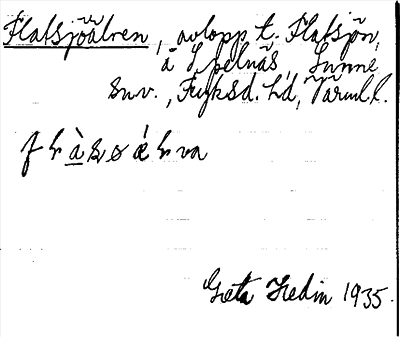 Flatsjöälven, avlopp t. Flatsjön,
å Spelnäs, Sunne
sn., Fryksd. hd, Värml. l.
Greta Hedin 1935.